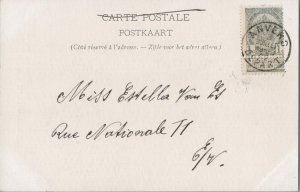 CARTE POSTALE
POSTKAART
(Côté réservé à l'adresse. — Zijde voor het adres alleen.)
ANVERS
DÉPART
Miss Estella Van Es
Rue Nationale 11
E/V.